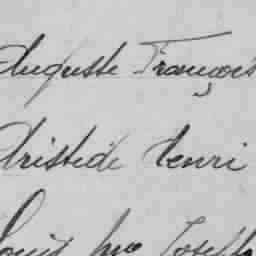 Auguste François
Aristide Henri
Louis Joseph